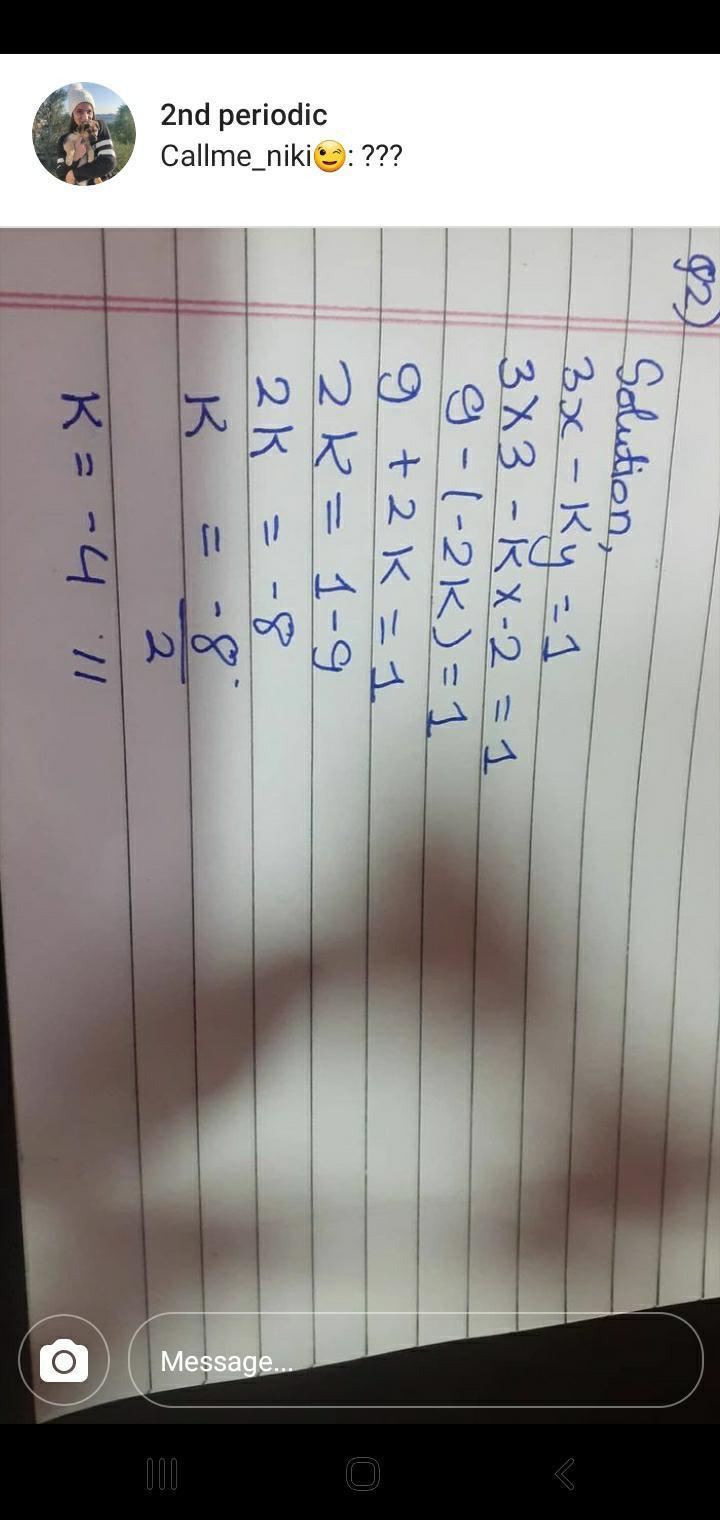 2nd periodic
Callme_niki😉: ???
Q2)
Solution,
3x - Ky = 1
3 x 3 - K x -2 = 1
9 - (-2K) = 1
9 + 2K = 1
2K = 1-9
2K = -8
K = -8
2
K = -4 "
Message...